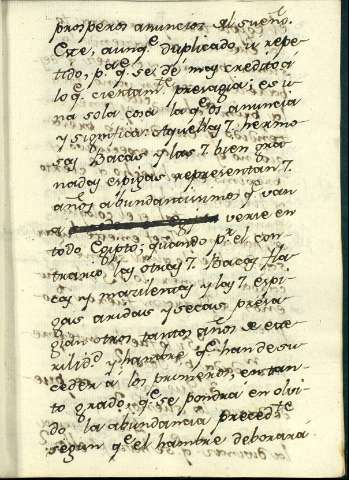 prosperos anuncios el sueño.
Este, aunqᵉ duplicado, y repe-
tido, pᵃ qᵉ se dé mas credito á
lo qᵉ ciertamᵗᵉ presagia, es u-
na sola cosa la qᵉ os anuncia
y significa. Aquellas 7. hermo-
sas Bacas y las 7. bien gra-
nadas espigas representan 7.
años abundantisimos qᵉ van
a verse en
todo Egipto; quando pʳ el con-
trario las otras 7. Bacas fla-
cas y macilentas y las 7. espi-
gas aridas y secas presa-
gian otros tantos años de este-
rilidᵈ y hambre qᵉ han de su-
ceder a los primeros, en tan-
to grado, qᵉ se pondrá en olvi-
do la abundancia precedᵗᵉ
segun qᵉ el hambre deborará